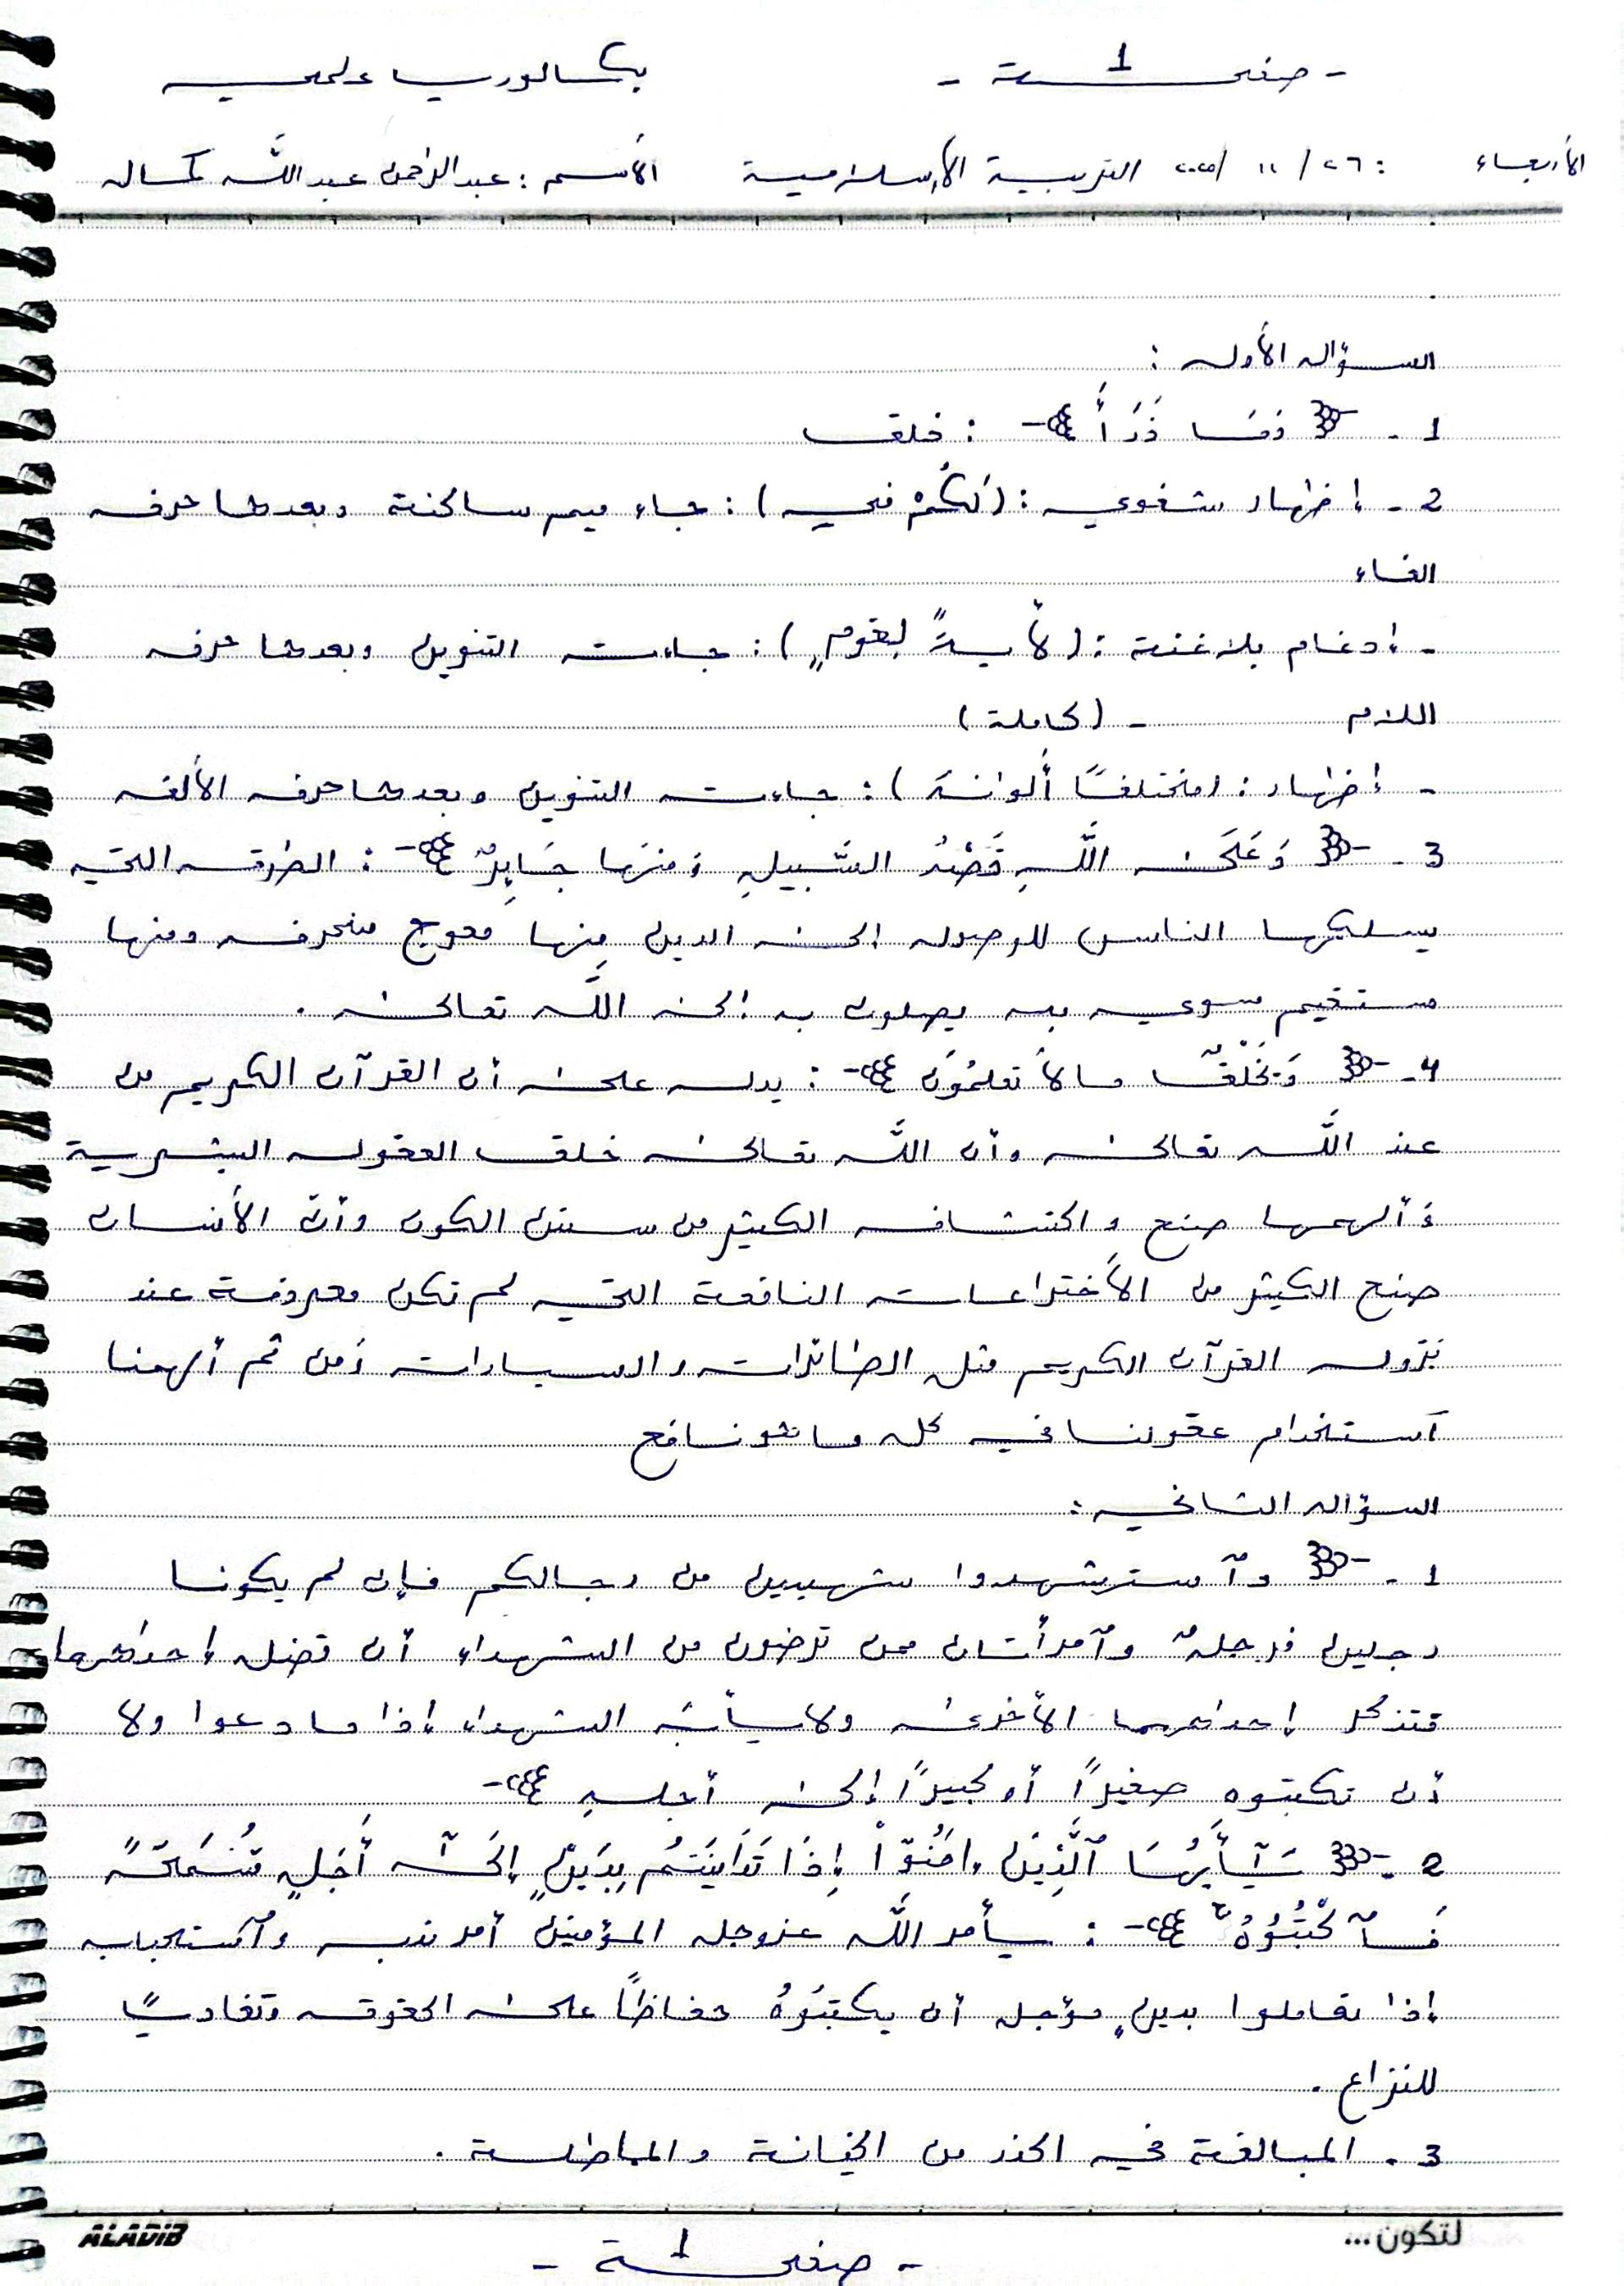 - صفحـ 1 ـة -
بكالوريا علمي
الأربعاء : ٢٦ / ١١ / ٢٠٢٥ التربية الأسلامية الأسم : عبد الرحمن عبد اللَّه كمال
السؤال الأول :
1 - ﴿ وَمَا ذَرَأَ ﴾ : خلق
2 - إظهار شفوي : ( لَكُمْ في ) : جاء ميم ساكنة وبعدها حرف
الفاء
- إدغام بلا غنة : ( لأيةً لِقومٍ ) : جاءت التنوين وبعدها حرف
اللام - ( كاملة )
- إظهار : ( مختلفًا ألوانه ) : جاءت التنوين وبعدها حرف الألف
3 - ﴿ وَعَلَى اللَّهِ قَصْدُ السَّبيلِ وَمنهَا جَايِرٌ ﴾ : الطرق التي
يسلكها الناس للوصول الى الدين مِنها معوج منحرف ومنها
مستقيم سوي به يصلون به الى اللَّه تعالى .
4 - ﴿ وَيَخْلُقُ ما لاَ تعلمُونَ ﴾ : يدل على أن القرآن الكريم من
عند اللَّه تعالى وأن اللَّه تعالى خلق العقول البشرية
وَألهمها صنع واكتشاف الكثير من سنن الكون وأنَّ الأنسان
صنع الكثير من الأختراعات النافعة التي لم تكن معروفة عند
نزول القرآن الكريم مثل الطائرات والسيارات وَمن ثم ألهمنا
آستخدام عقولنا في كل ما هو نافع
السؤال الثاني :
1 - ﴿ وآستشهدوا شهيدين من رجالكم فإن لم يكونا
رجلين فرجلٌ وآمرأتان ممن ترضون من الشهداء أن تضل إحداهما
فتذكر إحداهما الأخرى ولا يأبَ الشهداء إذا ما دعوا ولا
أن تكتبوه صغيراً أو كبيراً إلى أجلهِ ﴾
2 - ﴿ يَآأَيُّهَا ٱلَّذِينَ ءامَنُوٓاْ إِذَا تَدَايَنتُم بِدَيْنٍ إلَىٰٓ أَجَلٍ مُّسَمّىً
فَٱكْتُبُوهُ ﴾ : يأمر اللَّه عزوجل المؤمنين أمر ندب وآستحباب
إذا تعاملوا بدينٍ مؤجل أن يكتبُوهُ حفاظاً على الحقوق وتفاديًا
للنزاع .
3 - المبالغة في الحذر من الخيانة والمماطلة .
ALADIB
لتكون ...
- صفحـ 1 ـة -